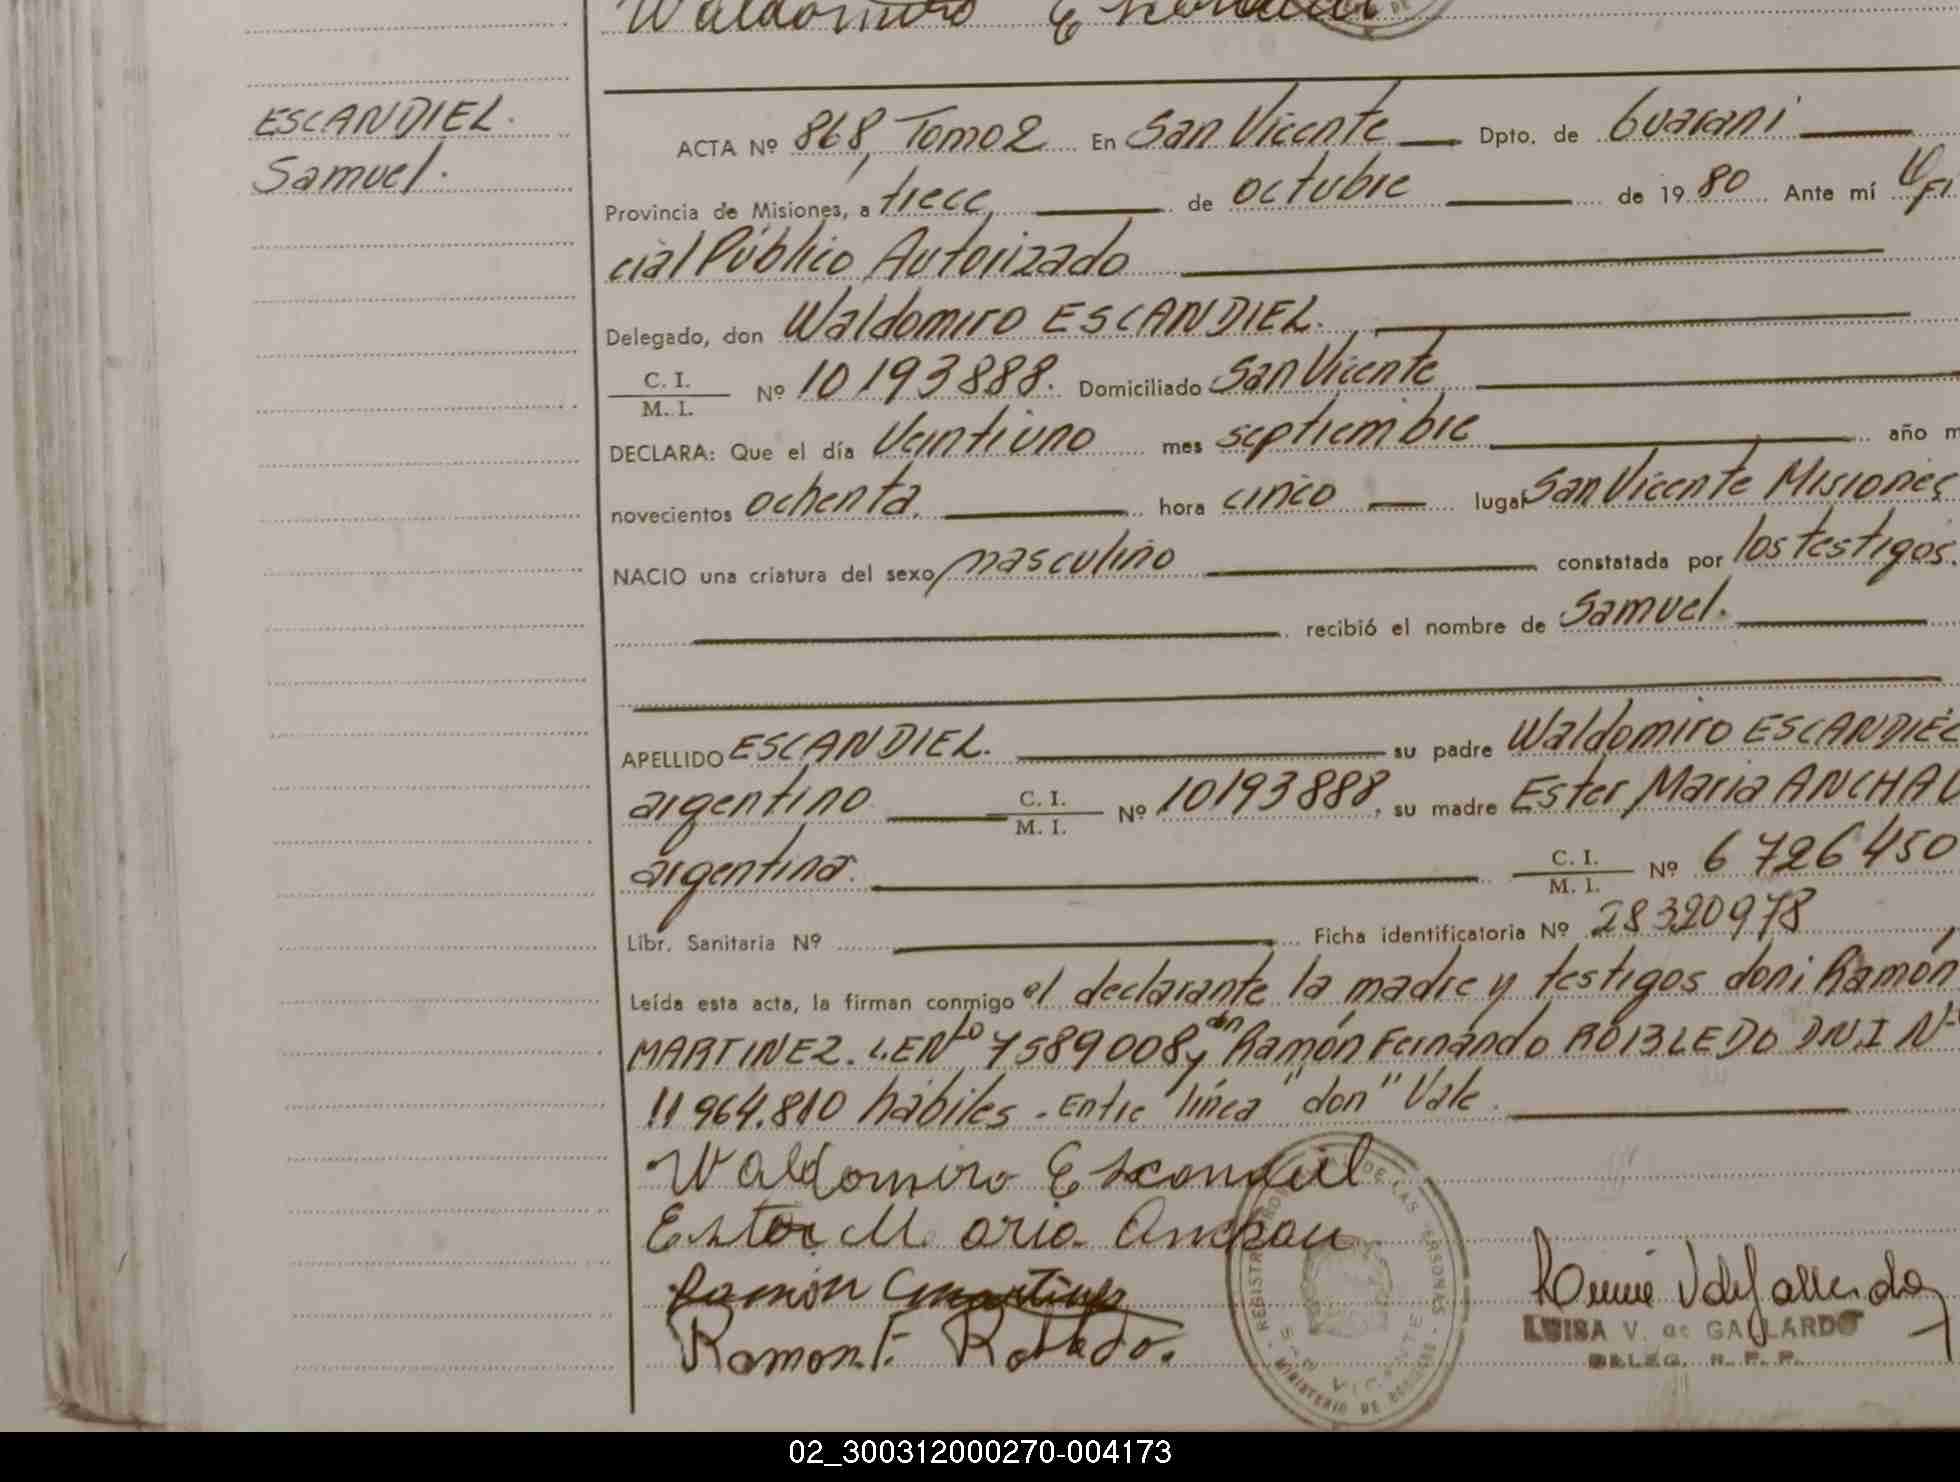 Waldomiro
ESCANDIEL.
Samuel.
ACTA Nº 868, Tomo 2 En San Vicente Dpto. de Guarani
Provincia de Misiones, a trece de octubre de 1980 Ante mí Ofi
cial Público Autorizado
Delegado, don Waldomiro ESCANDIEL.
C. I.
M. I. Nº 10193888. Domiciliado San Vicente
DECLARA: Que el día Veintiuno mes septiembre año m
novecientos ochenta. hora cinco lugar San Vicente Misiones
NACIO una criatura del sexo masculino constatada por los testigos.
recibió el nombre de Samuel.
APELLIDO ESCANDIEL. su padre Waldomiro ESCANDIEL
argentino C. I.
M. I. Nº 10193888, su madre Ester Maria ANCHAU
argentina. C. I.
M. I. Nº 6726450
Libr. Sanitaria Nº Ficha identificatoria Nº 28320978
Leída esta acta, la firman conmigo el declarante la madre y testigos don: Ramón
MARTINEZ. L.E Nto 7589008 y don Ramón Fernando ROBLEDO DNI Nto
11964.810 hábiles. Entre línea "don" Vale.
Waldomiro Escandiel
Ester Maria
Ramón C Martinez
Ramon F. Robledo.
REGISTRO PROV DE LAS PERSONAS
SAN VICENTE
MINISTERIO DE GOBIERNO
LUISA V. de GALLARDO
DELEG. R. P. P.
02_300312000270-004173